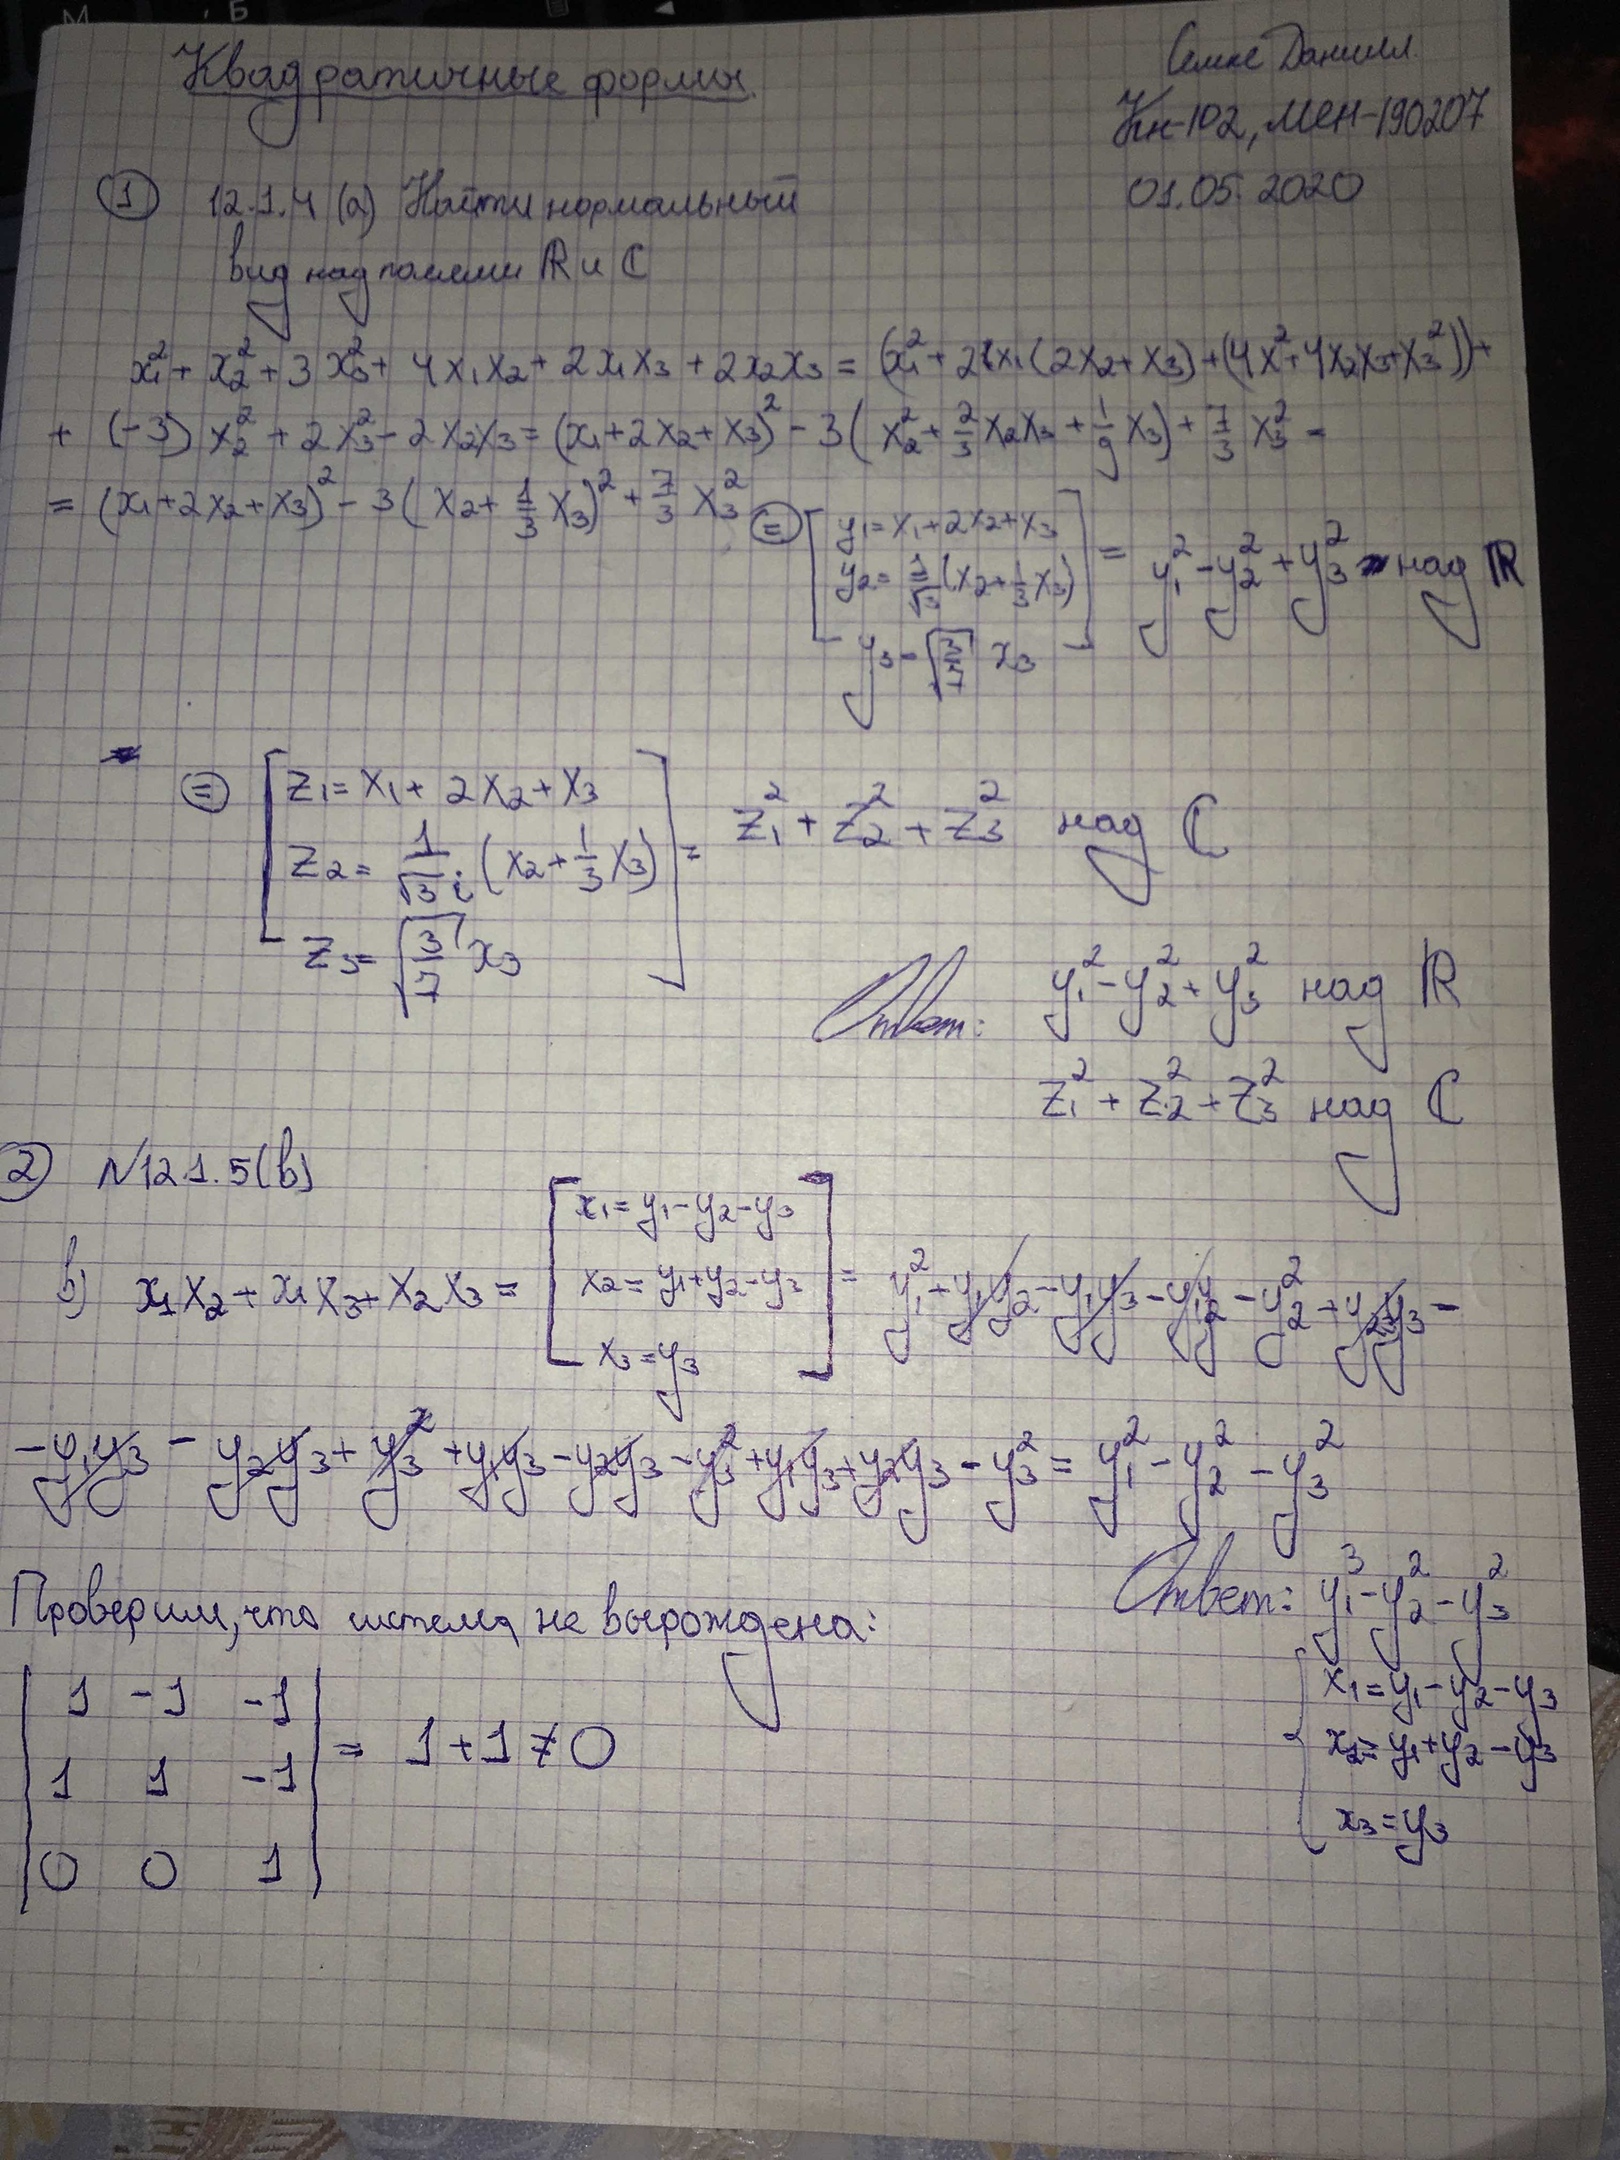 Квадратичные формы.
Семке Даниил.
Кн-102, МЕН-190207
01.05.2020
① 12.1.4 (а) Найти нормальный
вид над полями ℝ и ℂ
x₁² + x₂² + 3x₃² + 4x₁x₂ + 2x₁x₃ + 2x₂x₃ = (x₁² + 2x₁(2x₂+x₃) + (4x²+4x₂x₃+x₃²)) +
+ (-3)x₂² + 2x₃² - 2x₂x₃ = (x₁+2x₂+x₃)² - 3(x₂² + 2/3 x₂x₃ + 1/9 x₃) + 7/3 x₃² =
= (x₁+2x₂+x₃)² - 3(x₂ + 1/3 x₃)² + 7/3 x₃² ⊜ [y₁ = x₁+2x₂+x₃
y₂ = 1/√3 (x₂+1/3 x₃)
y₃ = √(3/7) x₃] = y₁² - y₂² + y₃² над ℝ
⊜ [z₁ = x₁ + 2x₂ + x₃
z₂ = 1/(√3 i) (x₂ + 1/3 x₃)
z₃ = √(3/7) x₃] = z₁² + z₂² + z₃² над ℂ
Ответ: y₁² - y₂² + y₃² над ℝ
z₁² + z₂² + z₃² над ℂ
② №12.1.5(b)
b) x₁x₂ + x₁x₃ + x₂x₃ = [x₁ = y₁-y₂-y₃
x₂ = y₁+y₂-y₃
x₃ = y₃] = y₁² + y₁y₂ - y₁y₃ - y₁y₂ - y₂² + y₂y₃ -
- y₁y₃ - y₂y₃ + y₃² + y₁y₃ - y₂y₃ - y₃² + y₁y₃ + y₂y₃ - y₃² = y₁² - y₂² - y₃²
Проверим, что система не вырождена:
Ответ: y₁³ - y₂² - y₃²
{x₁ = y₁-y₂-y₃
x₂ = y₁+y₂-y₃
x₃ = y₃
| 1 -1 -1 |
| 1 1 -1 | = 1+1 ≠ 0
| 0 0 1 |